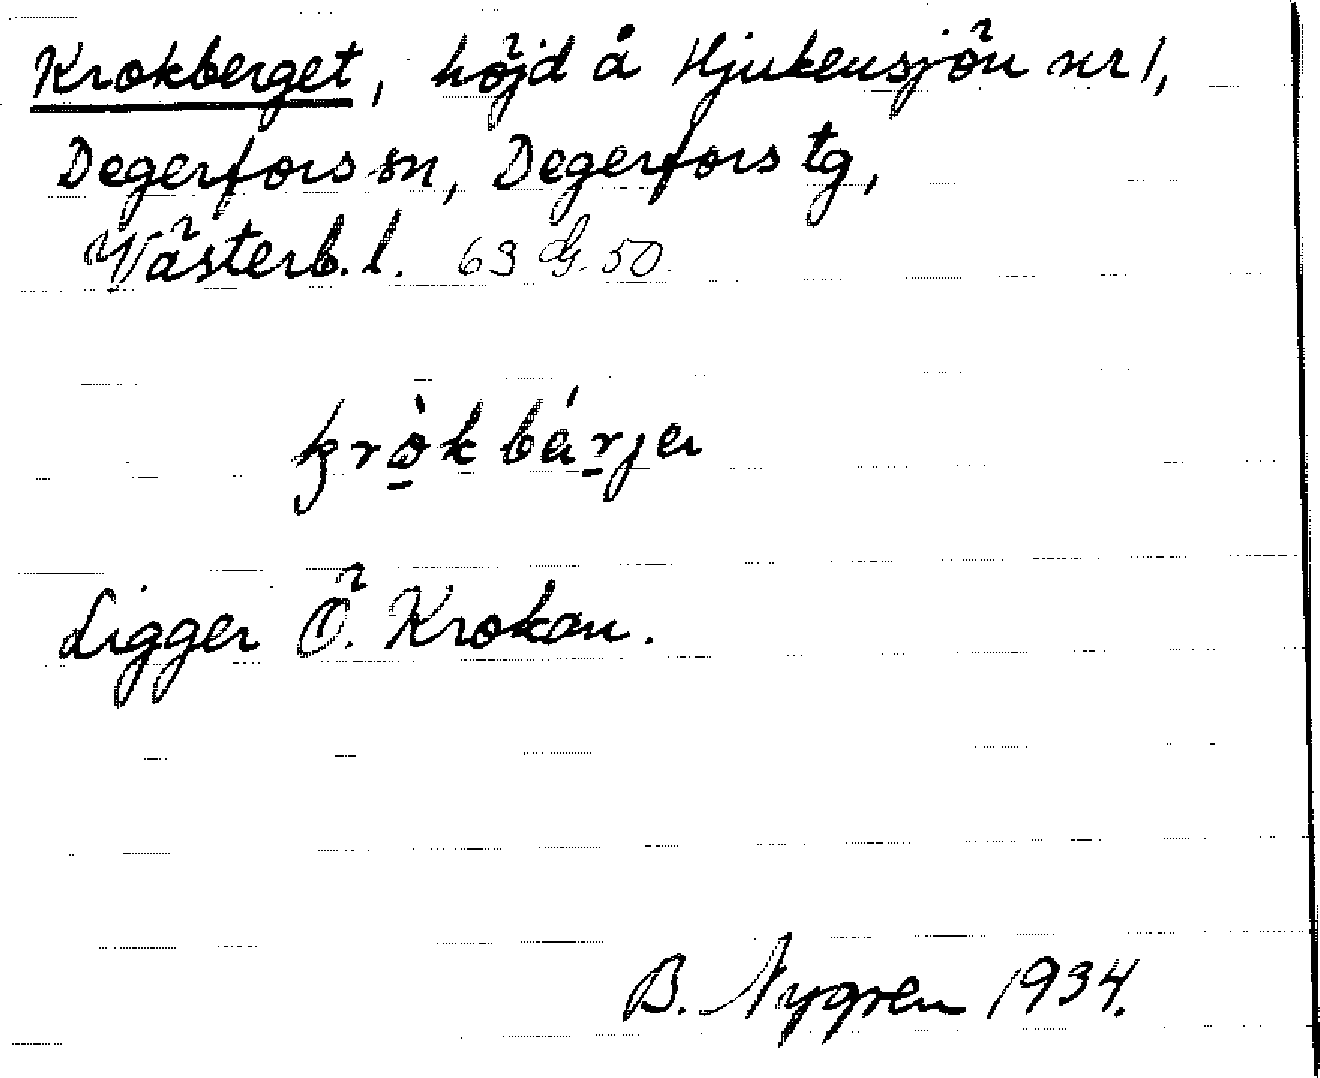 Krokberget, höjd å Hjukensjön nr 1,
Degerfors sn, Degerfors tg,
Västerb. l. 63 Dg. 50.
krò̠kbár̠jer
Ligger Ö. Krokan.
B. Nygren 1934.